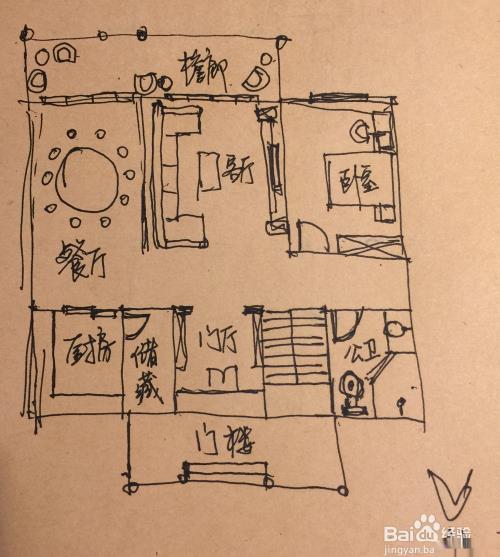 檐廊
客厅
卧室
餐厅
厨房
储藏
门厅
公卫
门楼
Baidu经验
jingyan.ba